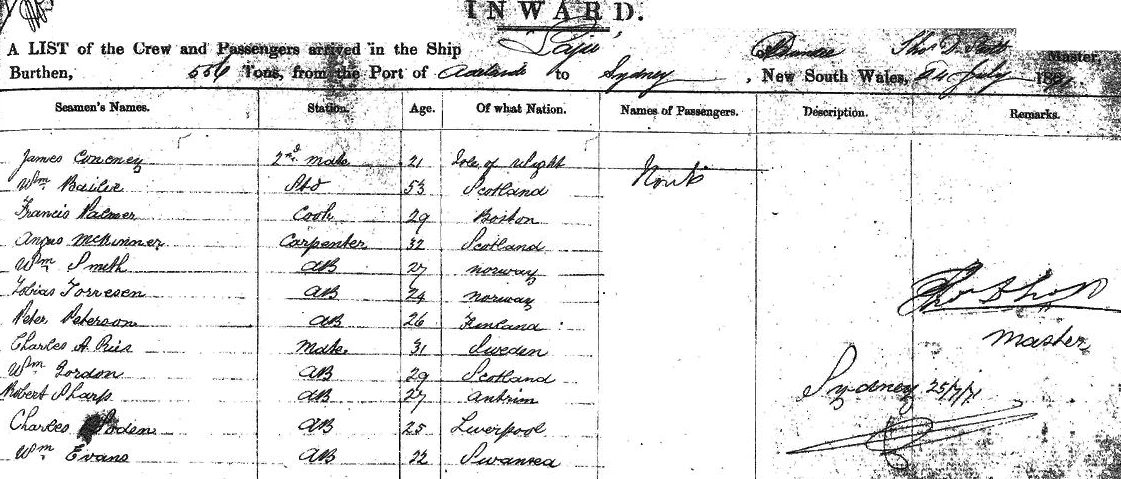 INWARD.
A LIST of the Crew and Passengers arrived in the Ship Master,
Burthen, 556 Tons, from the Port of to Sydney, New South Wales, 24 July 187
Seamen's Names. Station. Age. Of what Nation. Names of Passengers. Description. Remarks.
James 2nd Mate 21 Isle of Wight
Wm Std 53 Scotland
Francis Palmer Cook 29 Boston
Angus McKinner Carpenter 32 Scotland
Wm Smith AB 27 Norway
Tobias Torresen AB 24 Norway
Peter Peterson AB 26 Finland
Charles A. Mate 31 Sweden
Wm Gordon AB 29 Scotland
Robert Sharp AB 27 Antrim
Charles AB 25 Liverpool
Wm Evans AB 22 Swansea
Master
Sydney 25/7/71